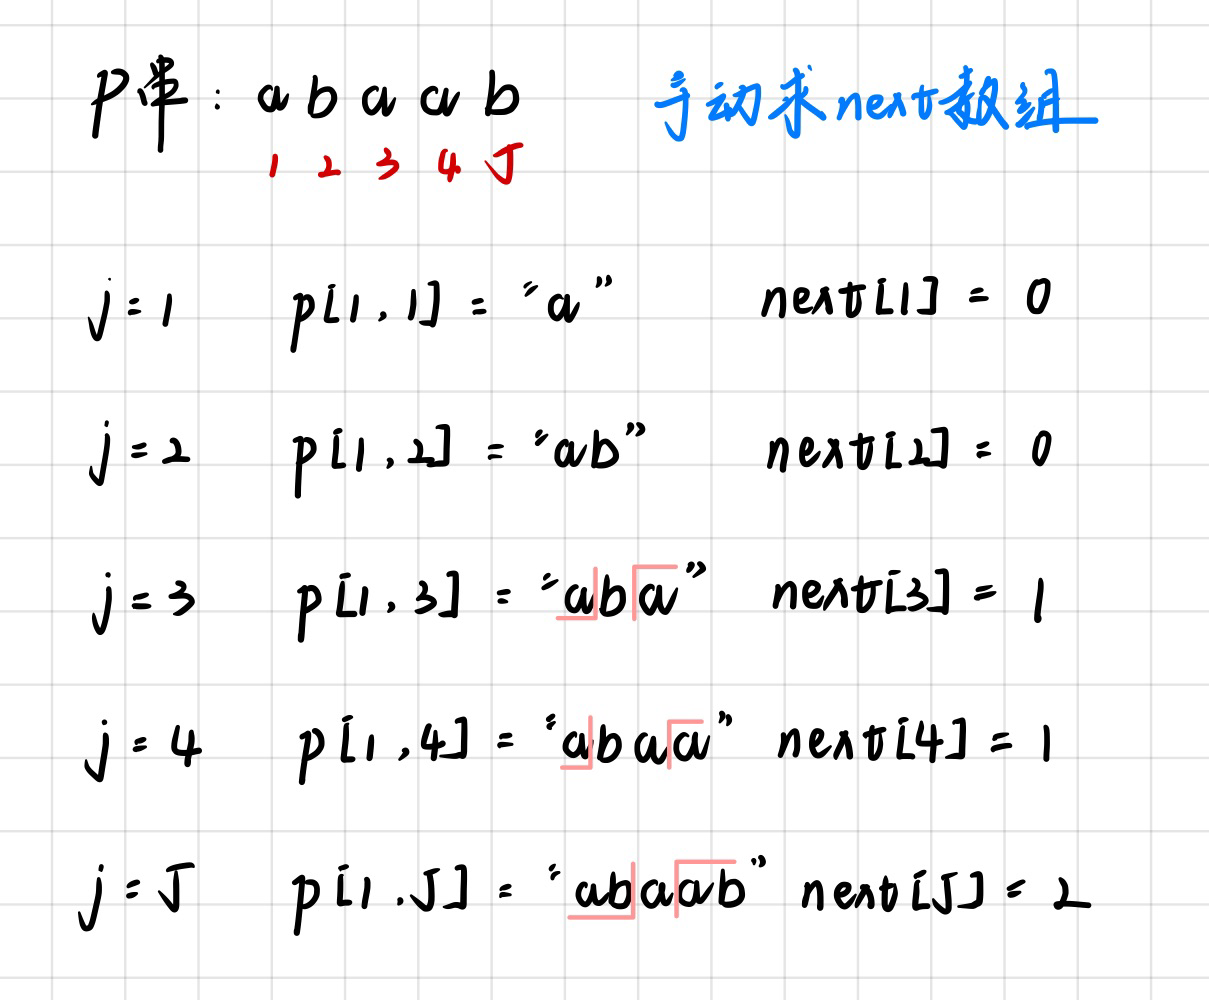 P串: a b a a b 手动求next数组
1 2 3 4 5
j = 1 p[1, 1] = "a" next[1] = 0
j = 2 p[1, 2] = "ab" next[2] = 0
j = 3 p[1, 3] = "aba" next[3] = 1
j = 4 p[1, 4] = "abaa" next[4] = 1
j = 5 p[1, 5] = "abaab" next[5] = 2